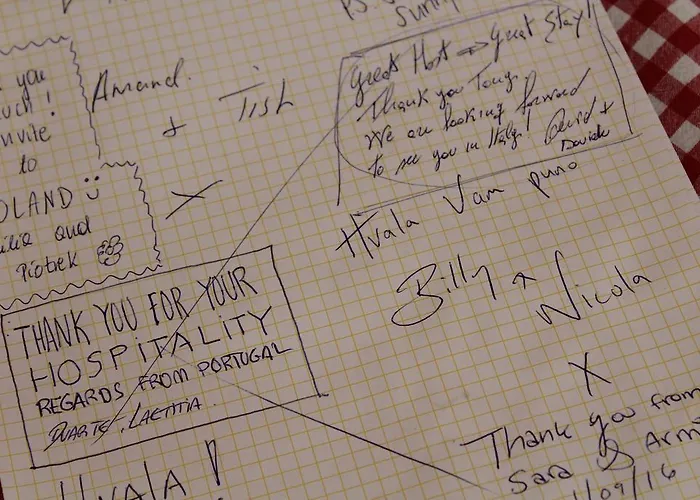 P.S.
Sunny
you
uch!
nvite
to
OLAND
and
Piotrek
Amand.
+
Tish
X
Great Host => Great Stay!
Thank you Tony.
We are looking forward
to see you in Italy! David +
Davide
Hvala Vam puno
Billy &
Nicola
X
THANK YOU FOR YOUR
HOSPITALITY
REGARDS FROM PORTUGAL
DUARTE, LAETITIA.
HVALA!
Thank you from
Sara & Arm
/09/16